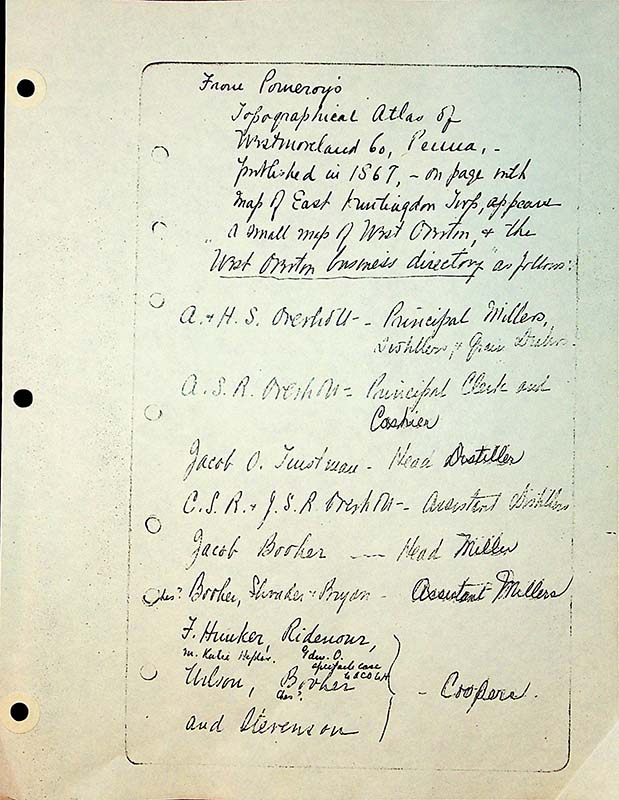 From Pomeroy's
Topographical Atlas of
Westmoreland Co, Penna, -
published in 1867, - on page with
map of East Huntingdon Twp, appears
a small map of West Overton, & the
"West Overton business directory" as follows:
A. & H. S. Overholt - Principal Millers,
Distillers & Grain Dealers.
A. S. R. Overholt - Principal Clerk and
Cashier
Jacob O. Tinstman - Head Distiller
C. S. R. & J. S. R. Overholt - Assistant Distillers
Jacob Booher --- Head Miller
Chas? Booher, Shrader & Bryan - Assistant Millers
F. Hunker, Ridenour,
m. Katie
Edw. O.
Wilson, Booher
Chas?
and Stevenson
- Coopers.